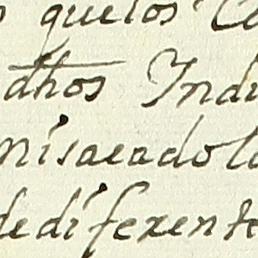 quelos Ca
dhos Indi
nisacadola
dediferente